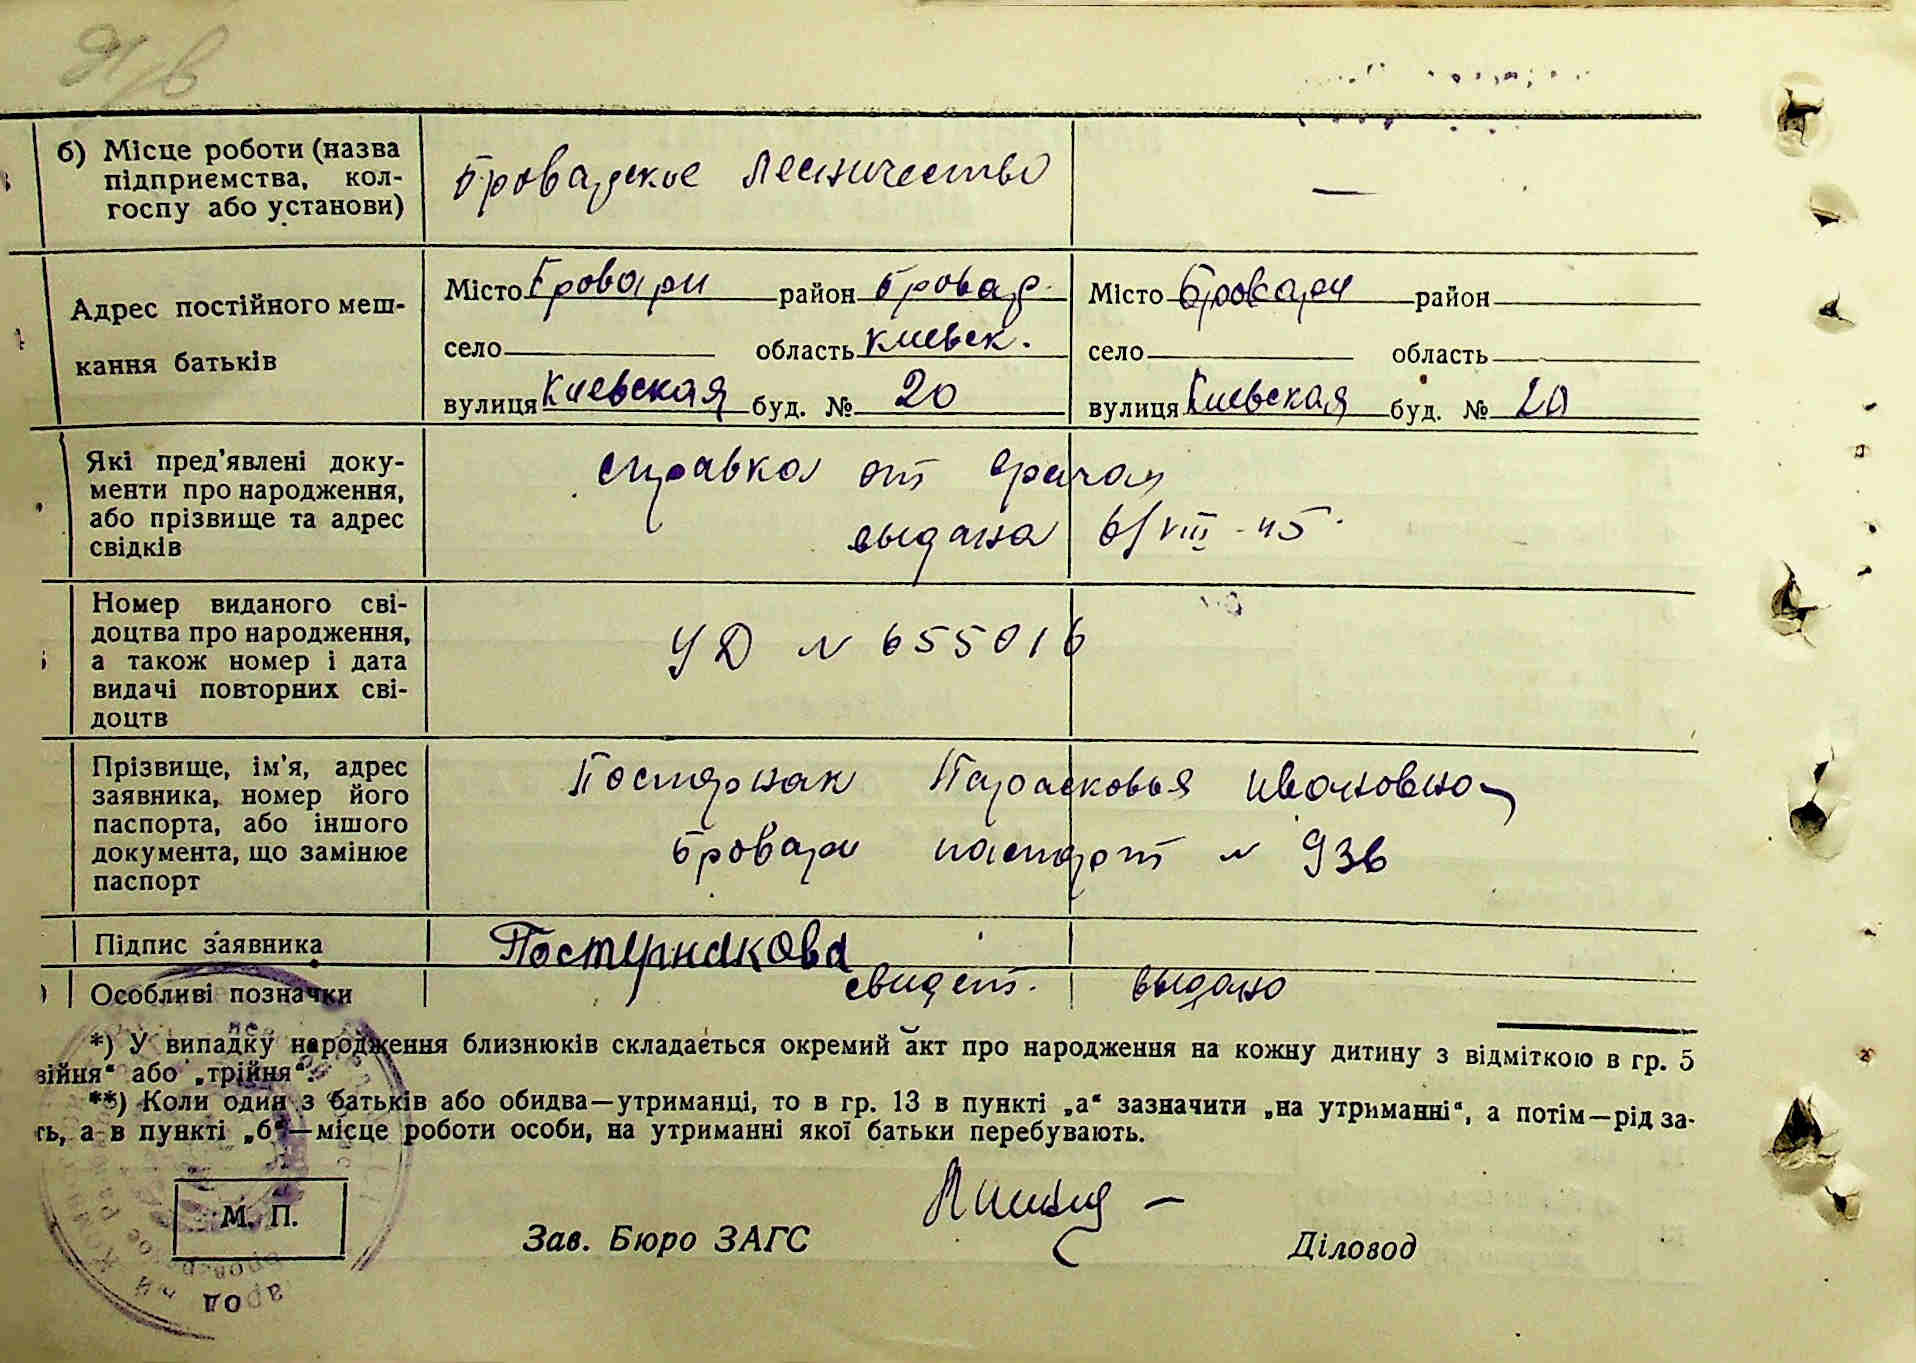 б) Місце роботи (назва
підприємства, кол-
госпу або установи)
Броварское лесничество —
Адрес постійного меш-
кання батьків
Місто Бровари район Бровар.
село область Киевск.
вулиця Киевская буд. № 20
Місто Бровари район
село область
вулиця Киевская буд. № 20
Які пред'явлені доку-
менти про народження,
або прізвище та адрес
свідків
справка от врача
выдана 6/VIII-45
Номер виданого сві-
доцтва про народження,
а також номер і дата
видачі повторних сві-
доцтв
УД N 655016
Прізвище, ім'я, адрес
заявника, номер його
паспорта, або іншого
документа, що замінює
паспорт
Пастернак Парасковья Ивановна
Бровари паспорт N 936
Підпис заявника
Постернакова
Особливі позначки
свидет. выдано
*) У випадку народження близнюків складається окремий акт про народження на кожну дитину з відміткою в гр. 5
війня" або „трійня".
**) Коли один з батьків або обидва—утриманці, то в гр. 13 в пункті „а" зазначити „на утриманні", а потім—рід за-
ть, а в пункті „б"—місце роботи особи, на утриманні якої батьки перебувають.
М. П.
Зав. Бюро ЗАГС
Діловод